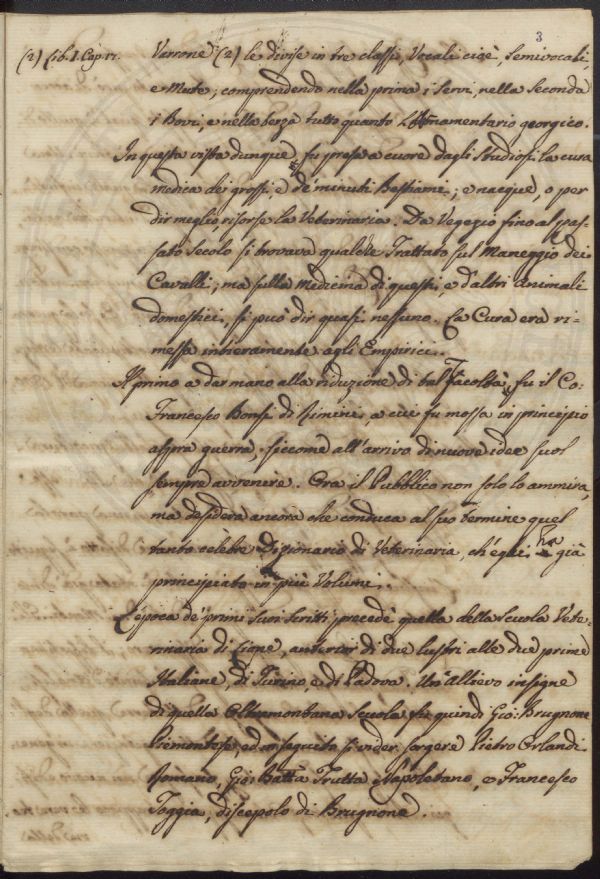 3
(2) Lib. I. Cap. 17.
Varrone (2) le divise in tre classi, Vocali cioè, Semivocali,
e Mute; comprendendo nella prima i Servi, nella Seconda
i Bovi, e nella terza tutto quanto L'Armamentario georgico.
In questa vista dunque fu presa a cuore dagli Studiosi la cura
medica dei grossi, e de' minuti Bestiami; e nacque, o per
dir meglio, risorse la Veterinaria. Da Vegezio fino al pas-
sato Secolo si trovava qualche Trattato sul Maneggio dei
Cavalli; ma sulla Medicina di questi, e d'altri animali
domestici, si può dir quasi nessuno. La Cura era ri-
messa intieramente agli Empirici.
Il primo a dar mano alla riduzione di tal Facoltà, fu il Co:
Francesco Bonsi di Rimini, a cui fu mossa in principio
aspra guerra, siccome all'arrivo di nuove idee suol
sempre avvenire. Ora il Pubblico non solo lo ammira,
ma desidera ancora che conduca al suo termine quel
tanto celebre Dizionario di Veterinaria, ch'egli ha già
principiato in più Volumi.
L'epoca de' primi suoi Scritti precedè quella della Scuola Vete-
rinaria di Lione, anterior di due lustri alle due prime
Italiane, di Turino, e di Padova. Un'Allievo insigne
di quella Oltramontana Scuola fu quindi Gio: Brugnone
Piemontese, ed in seguito si vider sorgere Pietro Orlandi
Romano, Gio: Batta Trutta Napoletano, e Francesco
Toggia, discepolo di Brugnone.